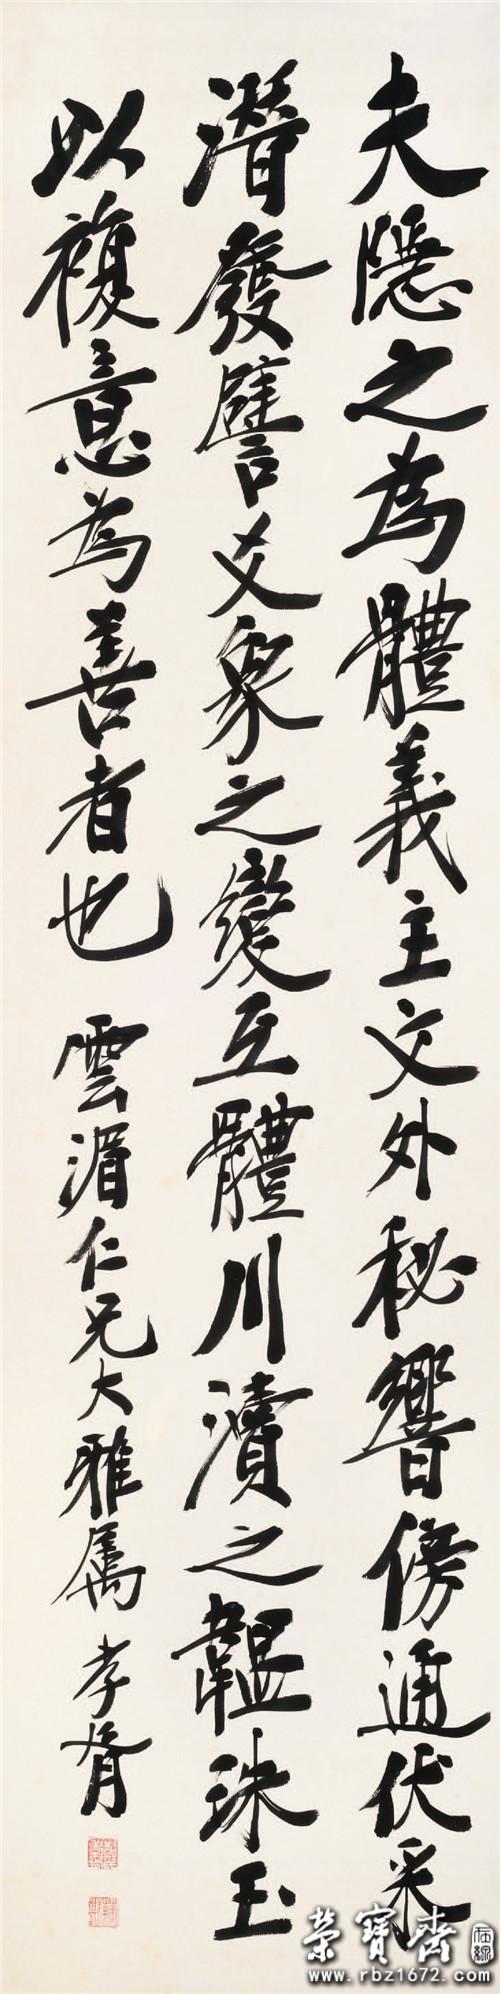 夫隱之為體義主文外秘響傍通伏采
潛發譬爻象之變互體川瀆之韞珠玉
以複意為善者也 雲湄仁兄大雅属 孝胥
榮寶齋
www.rbz1672.com